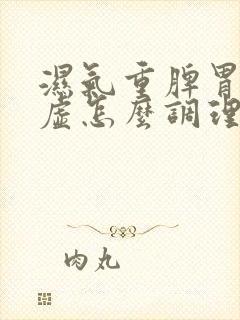 濕氣重脾胃
虛怎麼調理
肉丸